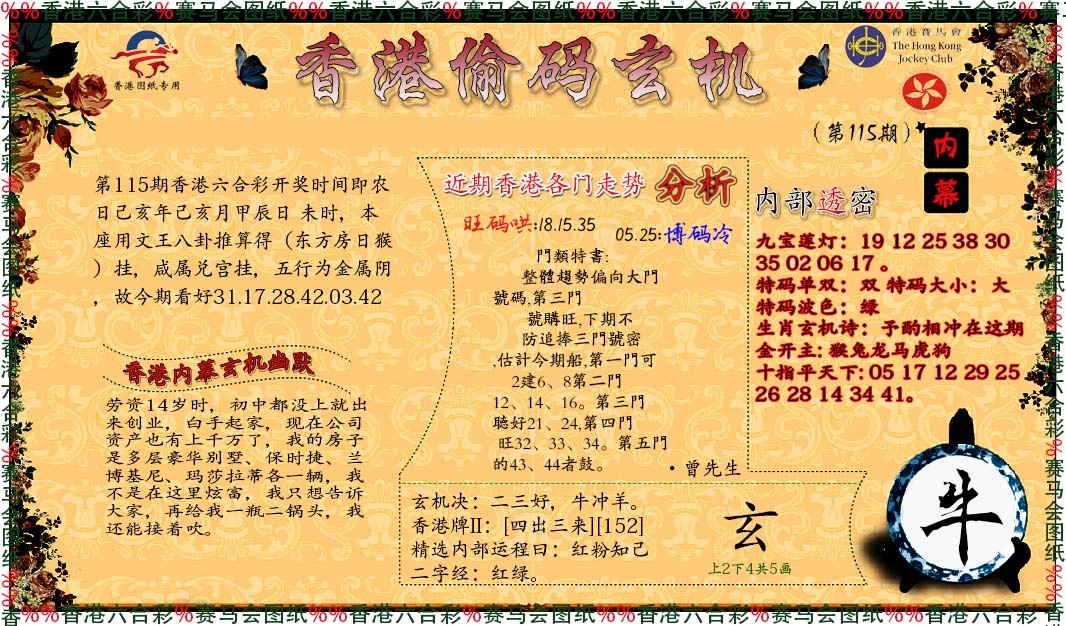 %%香港六合彩%赛马会图纸%%香港六合彩%赛马会图纸%%香港六合彩%赛马会图纸%%香港六合彩%赛马会图纸%%香港六合彩%赛
香港图纸专用
香港偷码玄机
香港賽馬會
The Hong Kong
Jockey Club
(第115期)
内幕
第115期香港六合彩开奖时间即农
日己亥年己亥月甲辰日 未时，本
座用文王八卦推算得（东方房日猴
）挂，咸属兑宫挂，五行为金属阴
，故今期看好31.17.28.42.03.42
香港内幕玄机幽默
劳资14岁时，初中都没上就出
来创业，白手起家，现在公司
资产也有上千万了，我的房子
是多层豪华别墅、保时捷、兰
博基尼、玛莎拉蒂各一辆，我
不是在这里炫富，我只想告诉
大家，再给我一瓶二锅头，我
还能接着吹。
近期香港各门走势 分析
旺码哄:18.15.35
05.25:博码冷
門類特書:
整體趨勢偏向大門
號碼,第三門
號購旺,下期不
防追捧三門號密
,估計今期船,第一門可
2建6、8第二門
12、14、16。第三門
聽好21、24,第四門
旺32、33、34。第五門
的43、44者鼓。
·曾先生
玄机决：二三好，牛冲羊。
香港牌II：[四出三来][152]
精选内部运程曰：红粉知己
二字经：红绿。
玄
上2下4共5画
内部透密
九宝莲灯：19 12 25 38 30
35 02 06 17 。
特码单双：双 特码大小：大
特码波色：绿
生肖玄机诗：予酌相冲在这期
金开主: 猴兔龙马虎狗
十指平天下: 05 17 12 29 25
26 28 14 34 41。
牛
香%%香港六合彩%赛马会图纸%%香港六合彩%赛马会图纸%%香港六合彩%赛马会图纸%%香港六合彩%赛马会图纸%%香港六合彩